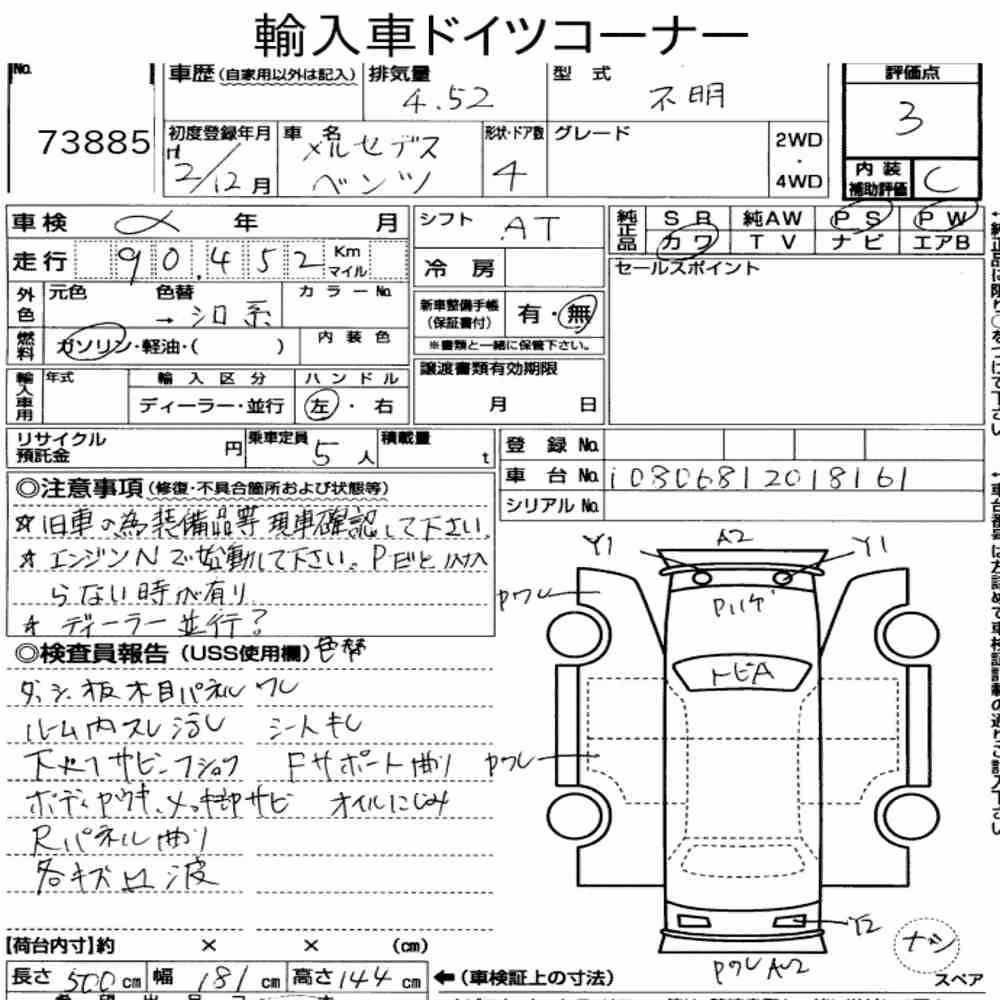 輸入車ドイツコーナー
No. 73885
車歴(自家用以外は記入)
排気量 4.52
型式 不明
評価点 3
初度登録年月 H 2/12月
車名 メルセデスベンツ
形状・ドア数 4
グレード
2WD・4WD
内装補助評価 C
車検 〆 年 月
走行 90.452 Km マイル
シフト AT
純正品 SR 純AW PS PW
カワ TV ナビ エアB
冷房
セールスポイント
外色 元色 色替 カラーNo.
→シロ系
新車整備手帳(保証書付) 有・無
※書類と一緒に保管下さい。
燃料 ガソリン・軽油・( )
内装色
譲渡書類有効期限
月 日
輸入車用 年式 輸入区分 ハンドル
ディーラー・並行 左・右
リサイクル預託金 円
乗車定員 5人
積載量 t
登録No.
車台No.
シリアルNo.
◎注意事項(修復・不具合箇所および状態等)
☆旧車の為装備品等現車確認して下さい。
☆エンジンNで始動して下さい。Pだと掛か
らない時が有り
☆ディーラー並行?
◎検査員報告(USS使用欄)色替
ダッシュ板木目パネルワレ
ルーム内スレ汚レ シートキレ
下廻りサビ
Fサポート曲り
オイルにじみ
Rパネル曲り
各キズ凹波
Y1 A2 Y1
ワレ
トビA
ワレ
Y2
ワレ A2
ナシ
スペア
【荷台内寸】約 × × (cm)
長さ 500cm 幅 181cm 高さ 144cm
←(車検証上の寸法)